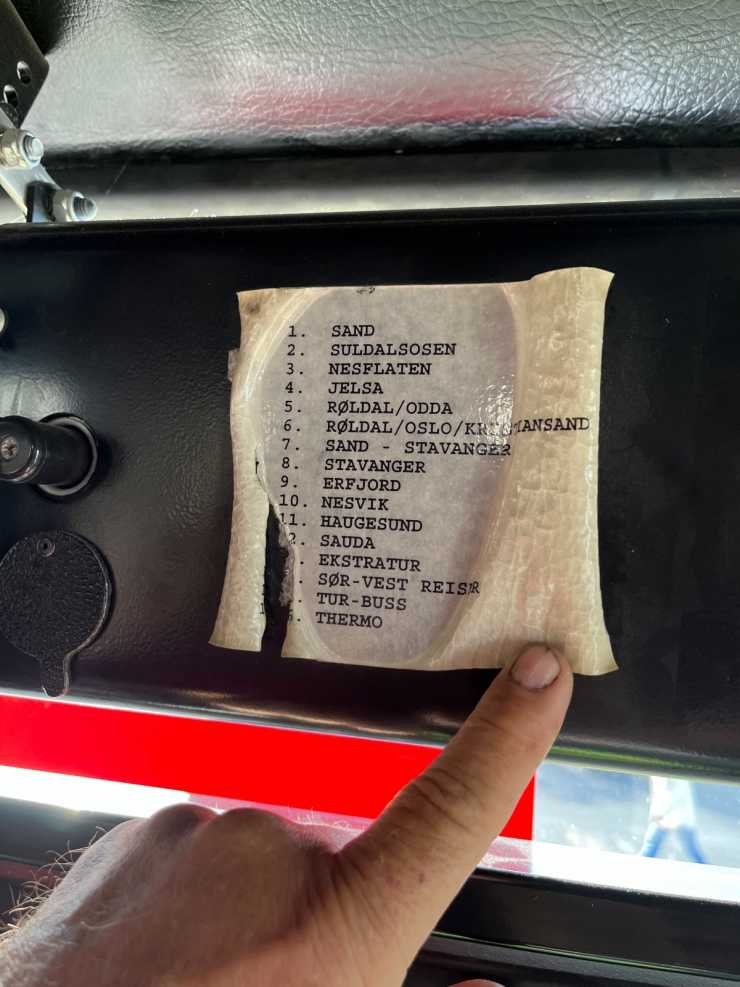 1. SAND
2. SULDALSOSEN
3. NESFLATEN
4. JELSA
5. RØLDAL/ODDA
6. RØLDAL/OSLO/KRISTIANSAND
7. SAND - STAVANGER
8. STAVANGER
9. ERFJORD
10. NESVIK
11. HAUGESUND
2. SAUDA
. EKSTRATUR
. SØR-VEST REISER
. TUR-BUSS
. THERMO